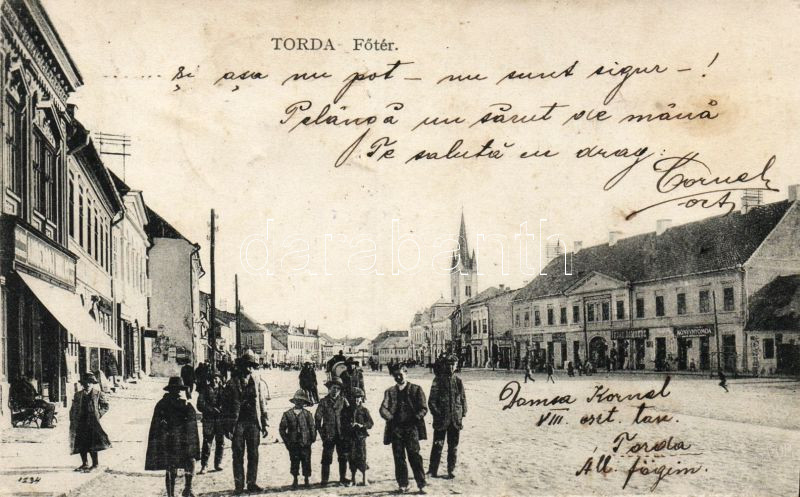 TORDA Főtér.
..... și așa nu pot - nu sunt sigur - !
Pelângă un sărut de mână
Te salută cu drag:
Cornel
oszt
Damsa Kornel
VIII. oszt. tan.
Torda
Áll. főgim.
KÖNYVNYOMDA
darabanth
1234